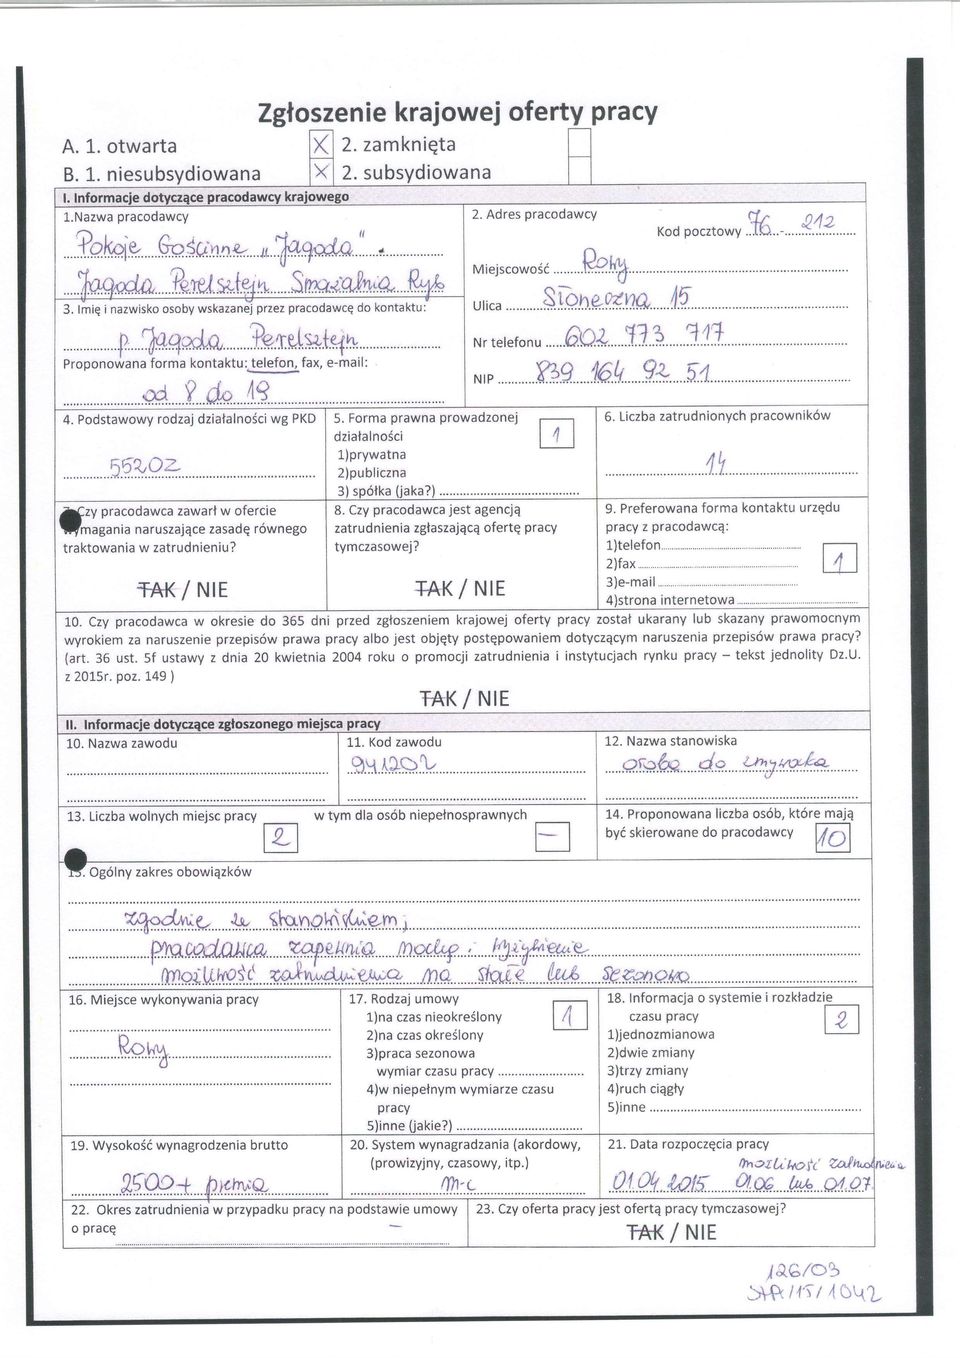 Zgłoszenie krajowej oferty pracy
A. 1. otwarta X 2. zamknięta
B. 1. niesubsydiowana X 2. subsydiowana
I. Informacje dotyczące pracodawcy krajowego
1.Nazwa pracodawcy
Pokoje Gościnne „Jagoda"
Jagoda Perelsztejn Smażalnia Ryb
2. Adres pracodawcy
Kod pocztowy 76 - 212
Miejscowość Rowy
Ulica Słoneczna 15
Nr telefonu 602 773 717
NIP 839 164 92 51
3. Imię i nazwisko osoby wskazanej przez pracodawcę do kontaktu:
p. Jagoda Perelsztejn
Proponowana forma kontaktu: telefon, fax, e-mail:
od 8 do 19
4. Podstawowy rodzaj działalności wg PKD
5520Z
5. Forma prawna prowadzonej
działalności 1
1)prywatna
2)publiczna
3) spółka (jaka?)
6. Liczba zatrudnionych pracowników
14
7. Czy pracodawca zawarł w ofercie
wymagania naruszające zasadę równego
traktowania w zatrudnieniu?
TAK / NIE
8. Czy pracodawca jest agencją
zatrudnienia zgłaszającą ofertę pracy
tymczasowej?
TAK / NIE
9. Preferowana forma kontaktu urzędu
pracy z pracodawcą:
1)telefon
2)fax 1
3)e-mail
4)strona internetowa
10. Czy pracodawca w okresie do 365 dni przed zgłoszeniem krajowej oferty pracy został ukarany lub skazany prawomocnym
wyrokiem za naruszenie przepisów prawa pracy albo jest objęty postępowaniem dotyczącym naruszenia przepisów prawa pracy?
(art. 36 ust. 5f ustawy z dnia 20 kwietnia 2004 roku o promocji zatrudnienia i instytucjach rynku pracy – tekst jednolity Dz.U.
z 2015r. poz. 149 )
TAK / NIE
II. Informacje dotyczące zgłoszonego miejsca pracy
10. Nazwa zawodu
11. Kod zawodu
941202
12. Nazwa stanowiska
osoba do zmywaka
13. Liczba wolnych miejsc pracy 2 w tym dla osób niepełnosprawnych –
14. Proponowana liczba osób, które mają
być skierowane do pracodawcy 10
15. Ogólny zakres obowiązków
zgodnie ze stanowiskiem;
pracodawca zapewnia nocleg i wyżywienie
możliwość zatrudnienia na stałe lub sezonowo
16. Miejsce wykonywania pracy
Rowy
17. Rodzaj umowy
1)na czas nieokreślony 1
2)na czas określony
3)praca sezonowa
wymiar czasu pracy
4)w niepełnym wymiarze czasu
pracy
5)inne (jakie?)
18. Informacja o systemie i rozkładzie
czasu pracy 2
1)jednozmianowa
2)dwie zmiany
3)trzy zmiany
4)ruch ciągły
5)inne
19. Wysokość wynagrodzenia brutto
2500+ premia
20. System wynagradzania (akordowy,
(prowizyjny, czasowy, itp.)
m-c
21. Data rozpoczęcia pracy
możliwość zatrudnienia
01.04.2015 01.06 lub 01.07
22. Okres zatrudnienia w przypadku pracy na podstawie umowy
o pracę –
23. Czy oferta pracy jest ofertą pracy tymczasowej?
TAK / NIE
126/03
StPr/15/1042